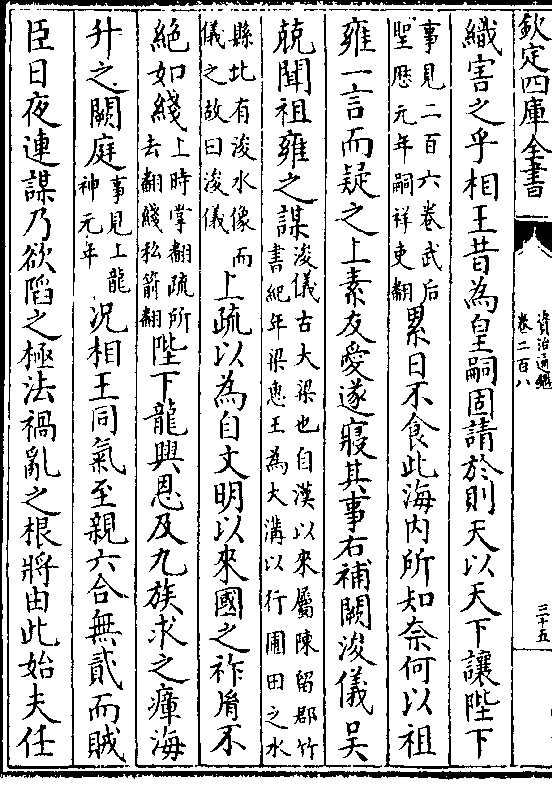 欽定四庫全書
資治通鑑
卷二百八
三十五
織害之乎相王昔為皇嗣固請於則天以天下讓陛下
事見二百六卷武后
聖厯元年嗣祥吏翻
累日不食此海内所知奈何以祖
雍一言而疑之上素友愛遂寢其事右補闕浚儀吳
兢聞祖雍之謀
浚儀古大梁也自漢以來屬陳留郡竹
書紀年梁惠王為大溝以行圃田之水
縣北有浚水像而
儀之故曰浚儀
上疏以為自文明以來國之祚𦙍不
絶如綫
上時掌翻疏所
去翻綫私箭翻
陛下龍興恩及九族求之瘴海
升之闕庭
事見上龍
神元年
况相王同氣至親六合無貳而賊
臣日夜連謀乃欲䧟之極法禍亂之根將由此始夫任